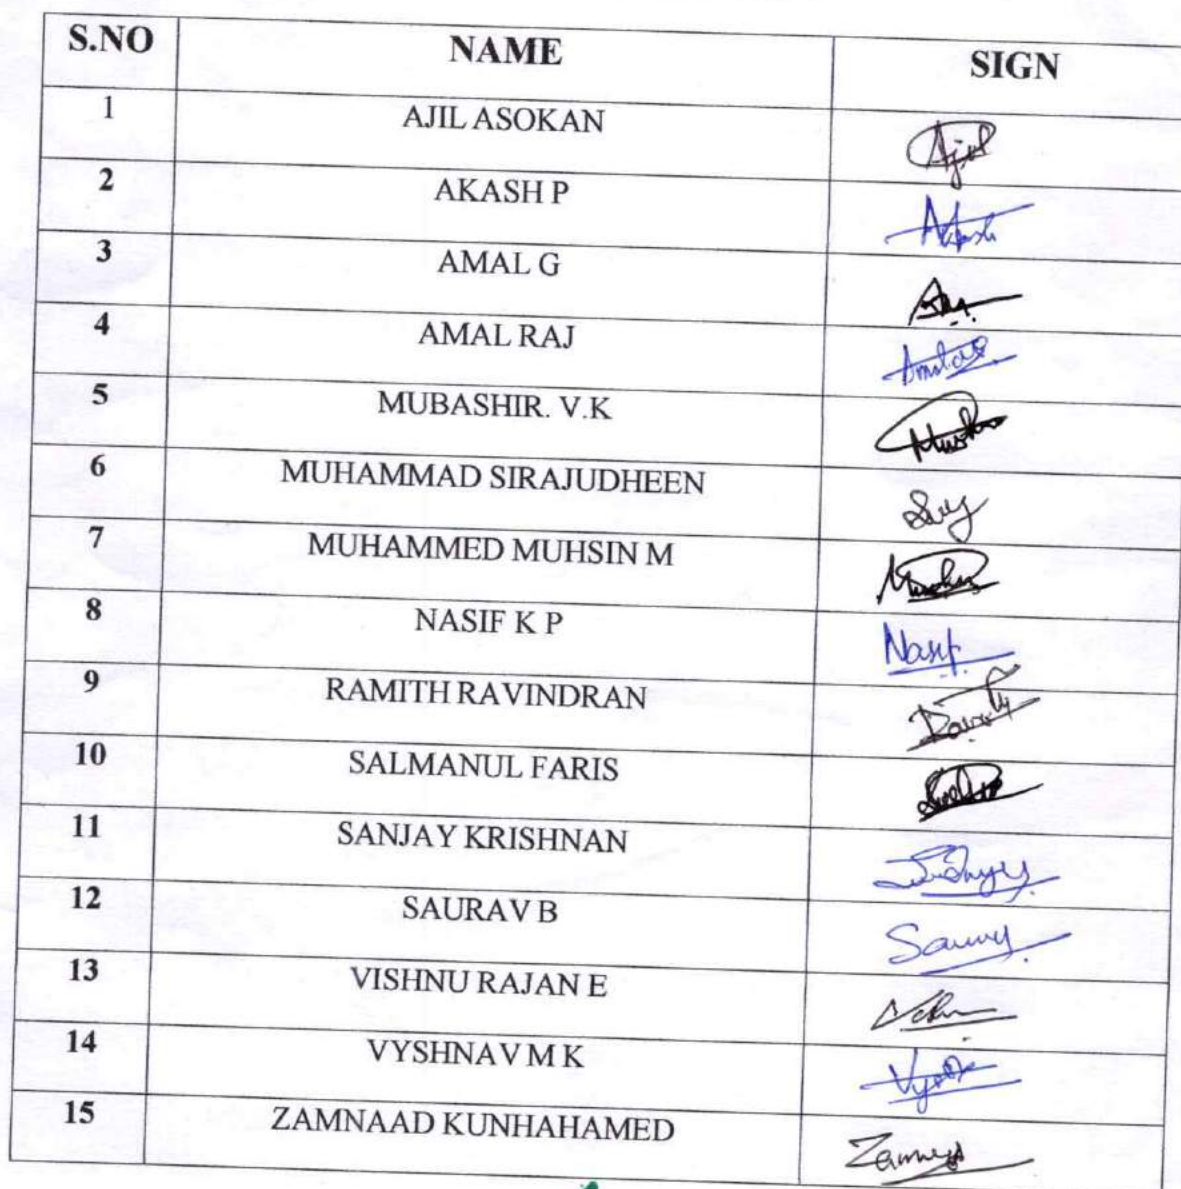 S.NO NAME SIGN
1 AJIL ASOKAN Ajil
2 AKASH P Akash
3 AMAL G
4 AMAL RAJ
5 MUBASHIR. V.K
6 MUHAMMAD SIRAJUDHEEN
7 MUHAMMED MUHSIN M
8 NASIF K P Nasif
9 RAMITH RAVINDRAN
10 SALMANUL FARIS
11 SANJAY KRISHNAN
12 SAURAV B
13 VISHNU RAJAN E
14 VYSHNAV M K
15 ZAMNAAD KUNHAHAMED